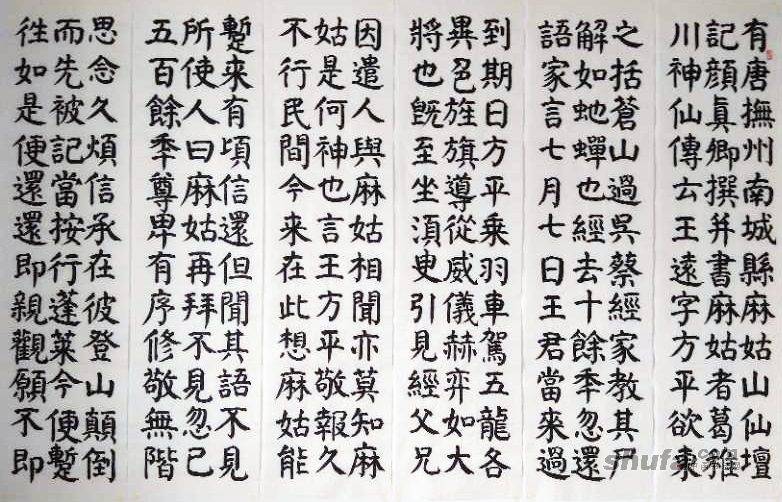 有唐撫州南城縣麻姑山仙壇
記顏真卿撰并書麻姑者葛稚
川神仙傳云王遠字方平欲東
之括蒼山過吳蔡經家教其尸
解如虵蟬也經去十餘秊忽還
語家言七月七日王君當來過
到期日方平乘羽車駕五龍各
異色旌旗導從威儀赫弈如大
將也既至坐須臾引見經父兄
因遣人與麻姑相聞亦莫知麻
姑是何神也言王方平敬報久
不行民間今来在此想麻姑能
蹔来有頃信還但聞其語不見
所使人曰麻姑再拜不見忽已
五百餘秊尊卑有序修敬無階
思念久煩信承在彼登山顛倒
而先被記當按行蓬萊今便蹔
往如是便還還即親觀願不即